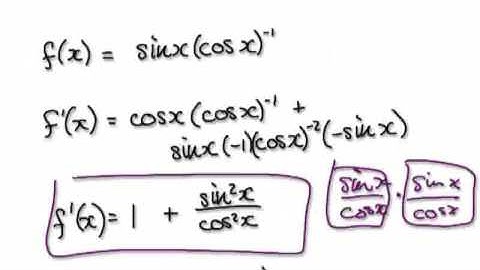 f(x) = sinx(cosx)⁻¹
f'(x) = cosx(cosx)⁻¹ +
sinx(-1)(cosx)⁻²(-sinx)
f'(x) = 1 + sin²x/cos²x sinx/cosx · sinx/cosx